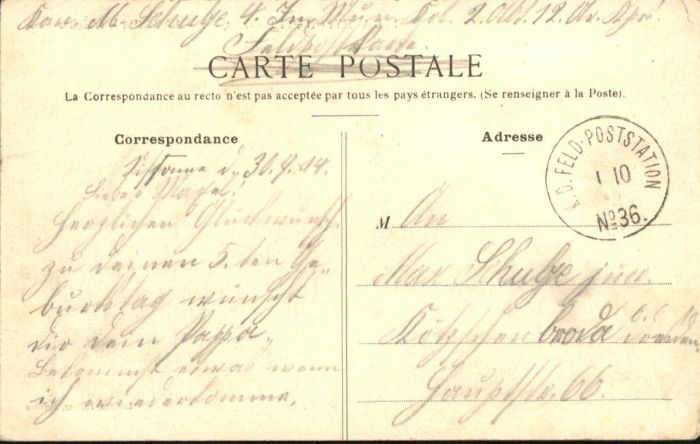 Kan. M. Schulze 4. Inf. Mun. Kol. 2. Abt. 12. Ar. Kps.
Feldpostkarte.
CARTE POSTALE
La Correspondance au recto n'est pas acceptée par tous les pays étrangers. (Se renseigner à la Poste).
Correspondance
Sissonne d. 30.9.14.
Lieber
Herzlichen Glückwunsch
zu deinen 5. ten Ge-
burtstag wünscht
dir dein Pappa.
Bekommst etwas wenn
ich wiederkomme.
Adresse
K.D. FELD-POSTSTATION
1 10
No 36.
M An
Max Schulze jun.
Kötzschenbroda b. Dresden
Hauptstr. 66.